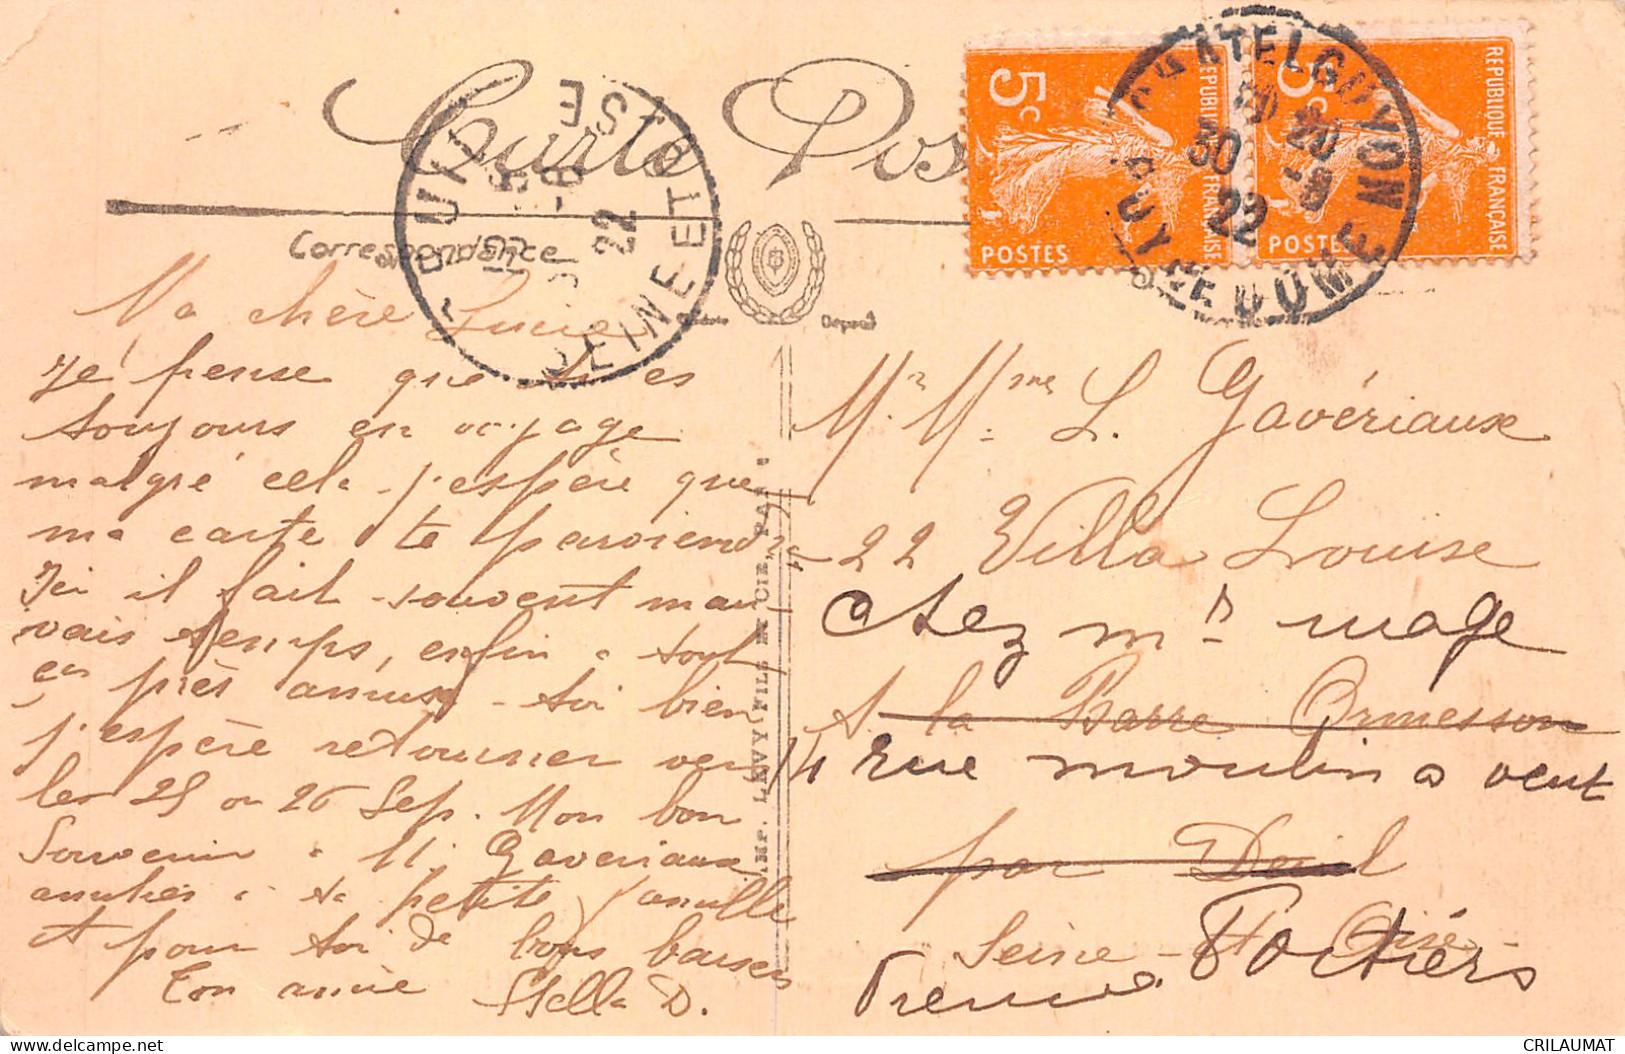 Carte Pos
Correspondance
5c
REPUBLIQUE FRANÇAISE
POSTES
5c
REPUBLIQUE FRANÇAISE
POSTES
CHATELGUYON
PUY DE DOME
30
22
20
-8
DEUIL
SEINE-ET-OISE
-8
22
Déposé
IMP. LEVY FILS ET CIE, PARIS
Ma chère Lucie
Je pense que tu es
toujours en voyage
malgré cela j'espère que
ma carte te parviendra
Ici il fait souvent mau-
vais temps, enfin à tout
près amuse-toi bien
j'espère retourner vers
les 25 ou 26 Sep. Mon bon
Souvenir à M. Gavériaux
amitiés à ta petite famille
et pour toi de bons baisers
Ton amie Stella D.
Mr Mme L. Gavériaux
22 Villa Louise
chez mr mage
A la Barre Ormesson
14 rue moulin a vent
par Deuil
Seine-et-Oise
Poitiers
Vienne
CRILAUMAT